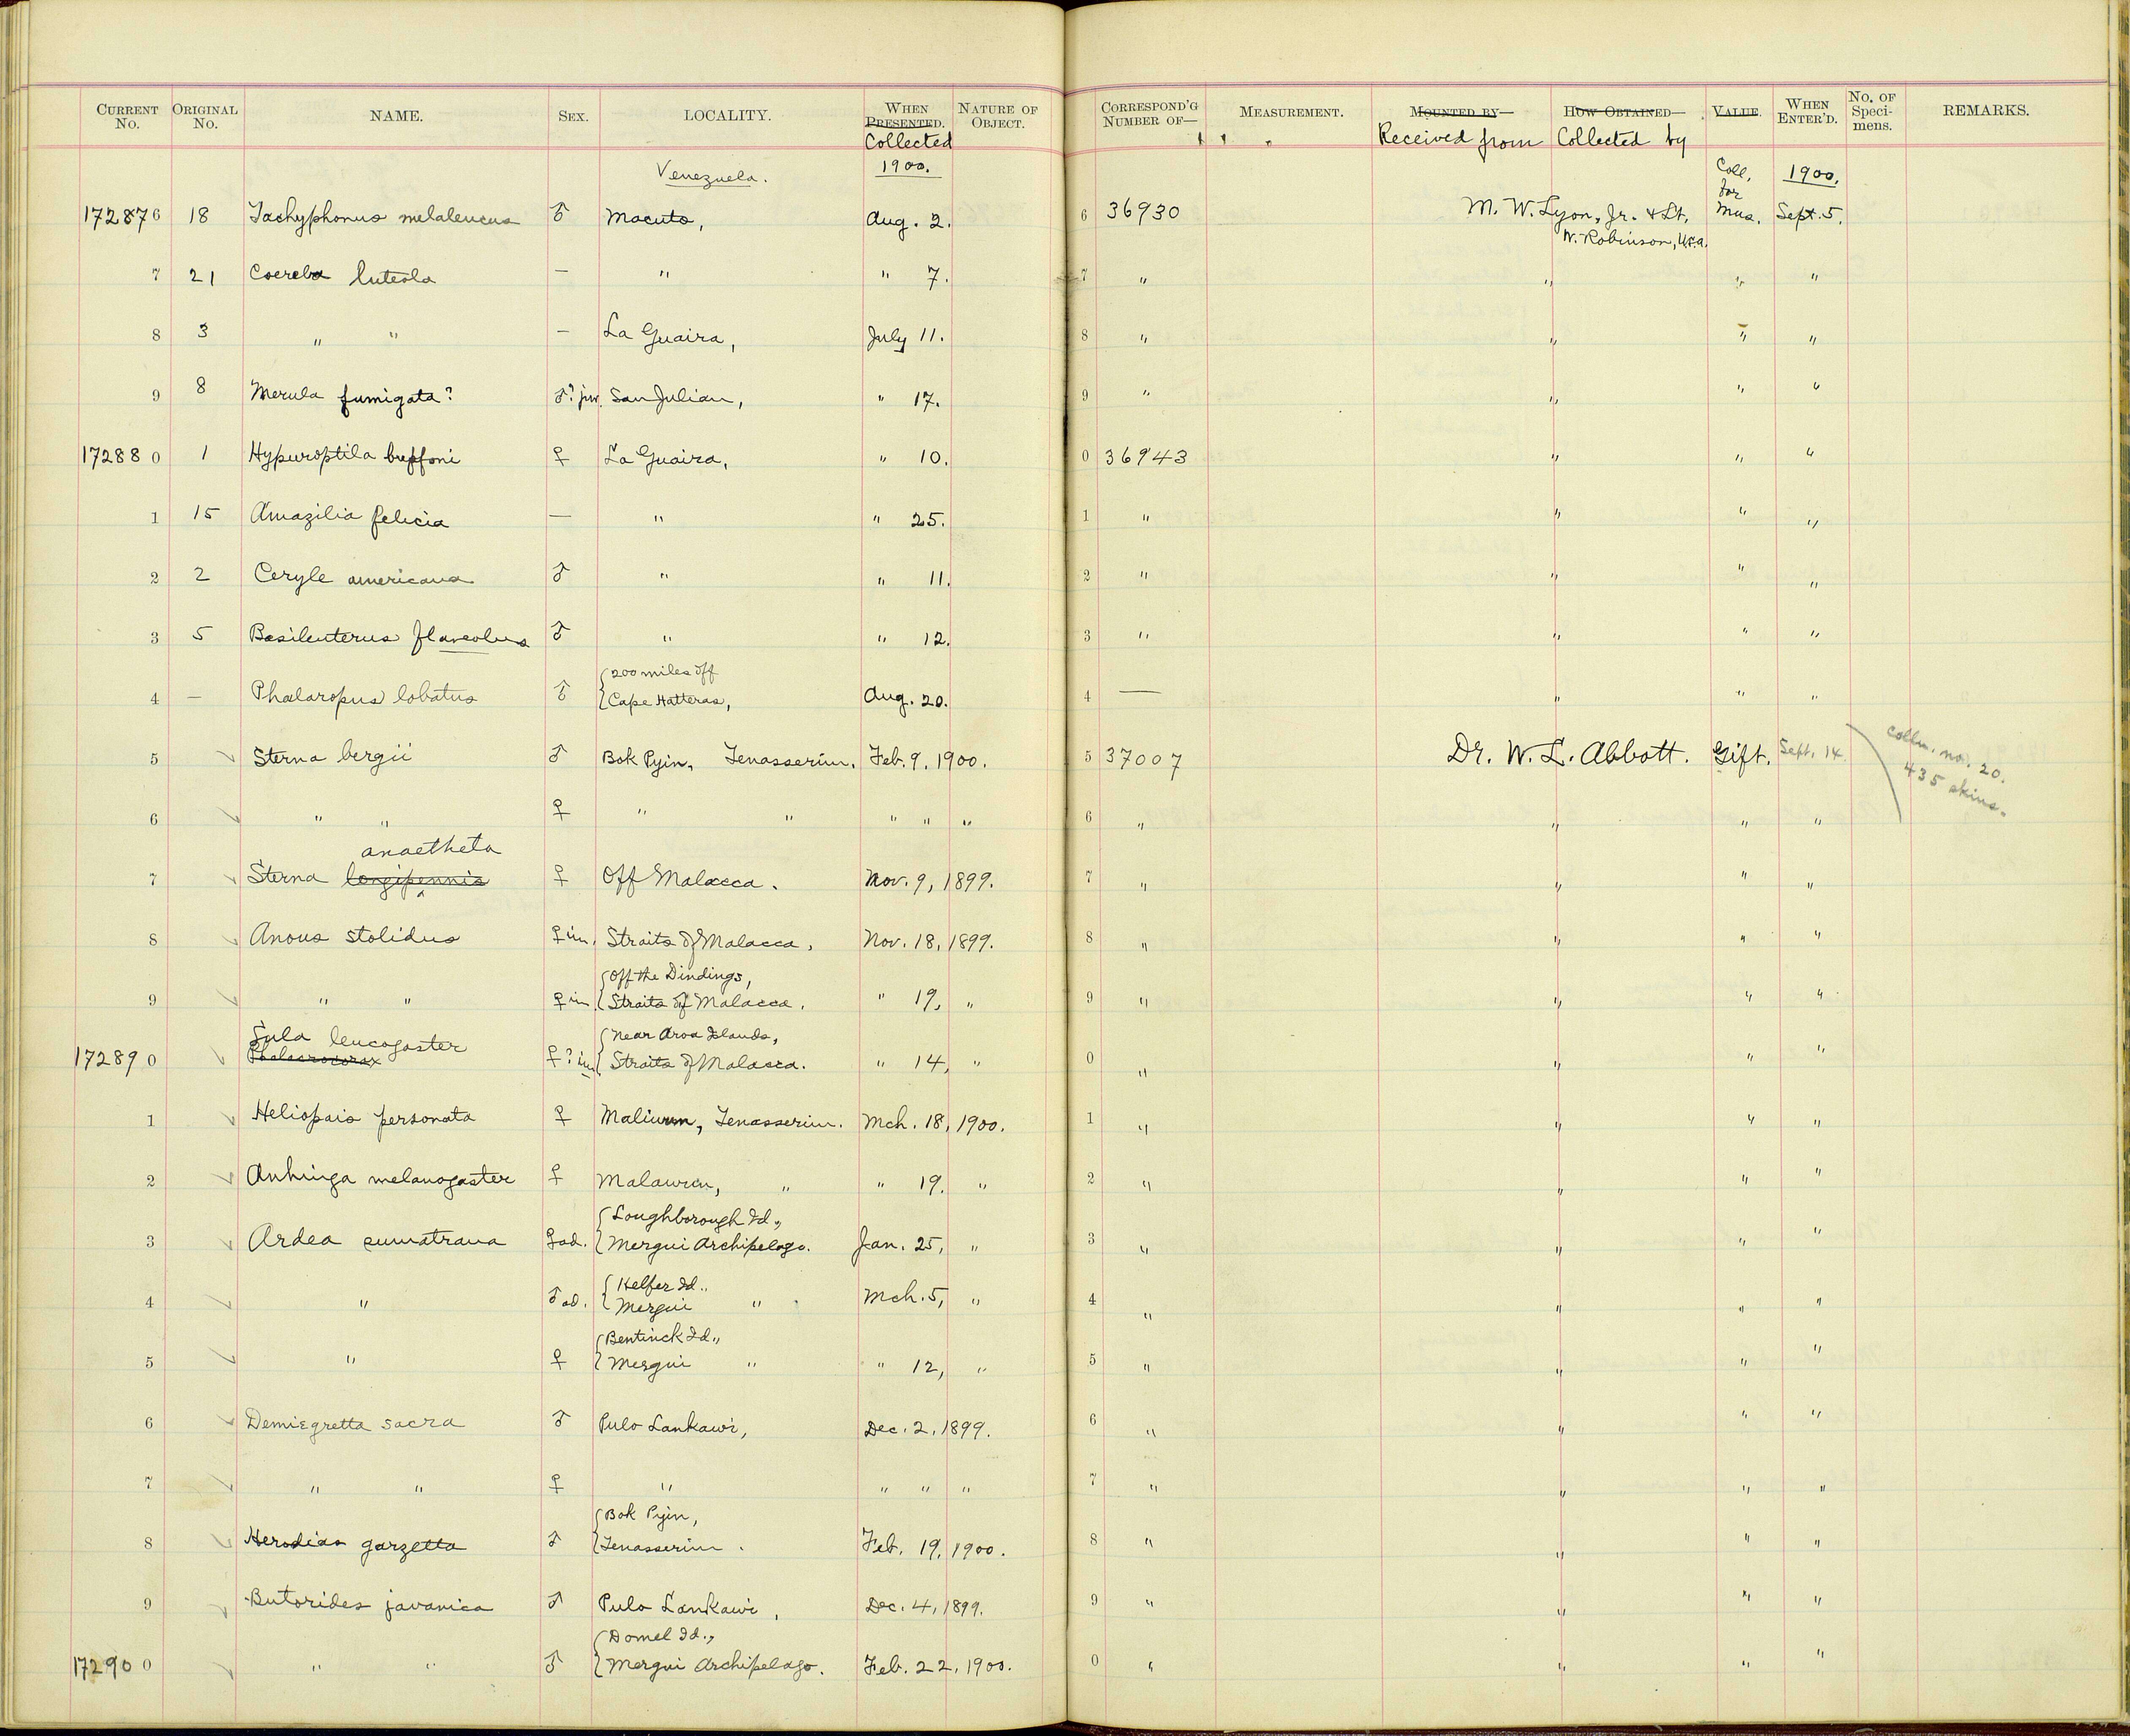 CURRENT No. ORIGINAL No. NAME. SEX. LOCALITY. WHEN PRESENTED. NATURE OF OBJECT. CORRESPOND'G NUMBER OF— MEASUREMENT. MOUNTED BY— HOW OBTAINED— VALUE. WHEN ENTER'D. No. OF Speci-mens. REMARKS.
Collected " " Received from Collected by
Venezuela. 1900. Coll. for 1900.
172876 18 Tachyphonus melaleucus ♂ Macuto, Aug. 2. 6 36930 M. W. Lyon, Jr. & Lt. Mus. Sept. 5.
W. Robinson, U.S.A.
7 21 Coereba luteola — " " 7. 7 " " " "
8 3 " " — La Guaira, July 11. 8 " " " "
9 8 Merula fumigata? ♂? juv. San Julian, " 17. 9 " " " "
172880 1 Hypuroptila buffoni ♀ La Guaira, " 10. 0 36943 " " "
1 15 Amazilia felicia — " " 25. 1 " " " "
2 2 Ceryle americana ♂ " " 11. 2 " " " "
3 5 Basileuterus flaveolus ♂ " " 12. 3 " " " "
{200 miles off
4 — Phalaropus lobatus ♂ Cape Hatteras, Aug. 20. 4 — " " "
5 Sterna bergii ♂ Bok Pyin, Tenasserim. Feb. 9. 1900. 5 37007 Dr. W. L. Abbott. Gift. Sept. 14 colln. no. 20.
435 skins.
6 " " ♀ " " " " " 6 " " " "
anaetheta
7 Sterna longipennis ♀ Off Malacca. Nov. 9, 1899. 7 " " " "
8 Anous stolidus ♀ im. Straits of Malacca, Nov. 18, 1899. 8 " " " "
{Off the Dindings,
9 " " ♀ im Straits of Malacca. " 19, " 9 " " " "
Sula leucogaster {Near Aroa Islands,
172890 Phalacrocorax ♀? im. Straits of Malacca. " 14, " 0 " " " "
1 Heliopais personata ♀ Maliwun, Tenasserim. Mch. 18, 1900. 1 " " " "
2 Anhinga melanogaster ♀ Malawun, " " 19. " 2 " " " "
{Loughborough Id.,
3 Ardea sumatrana ♀ ad. Mergui Archipelago. Jan. 25, " 3 " " " "
{Helfer Id.,
4 " ♂ ad. Mergui " Mch. 5, " 4 " " " "
{Bentinck Id.,
5 " ♀ Mergui " " 12, " 5 " " " "
6 Demiegretta sacra ♂ Pulo Lankawi, Dec. 2, 1899. 6 " " " "
7 " " ♀ " " " " 7 " " " "
{Bok Pyin,
8 Herodias garzetta ♂ Tenasserim. Feb. 19, 1900. 8 " " " "
9 Butorides javanica ♂ Pulo Lankawi, Dec. 4, 1899. 9 " " " "
{Domel Id.,
172900 " " ♂ Mergui Archipelago. Feb. 22, 1900. 0 " " " "